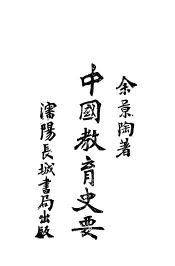 余景陶著
中國教育史要
瀋陽長城書局出版